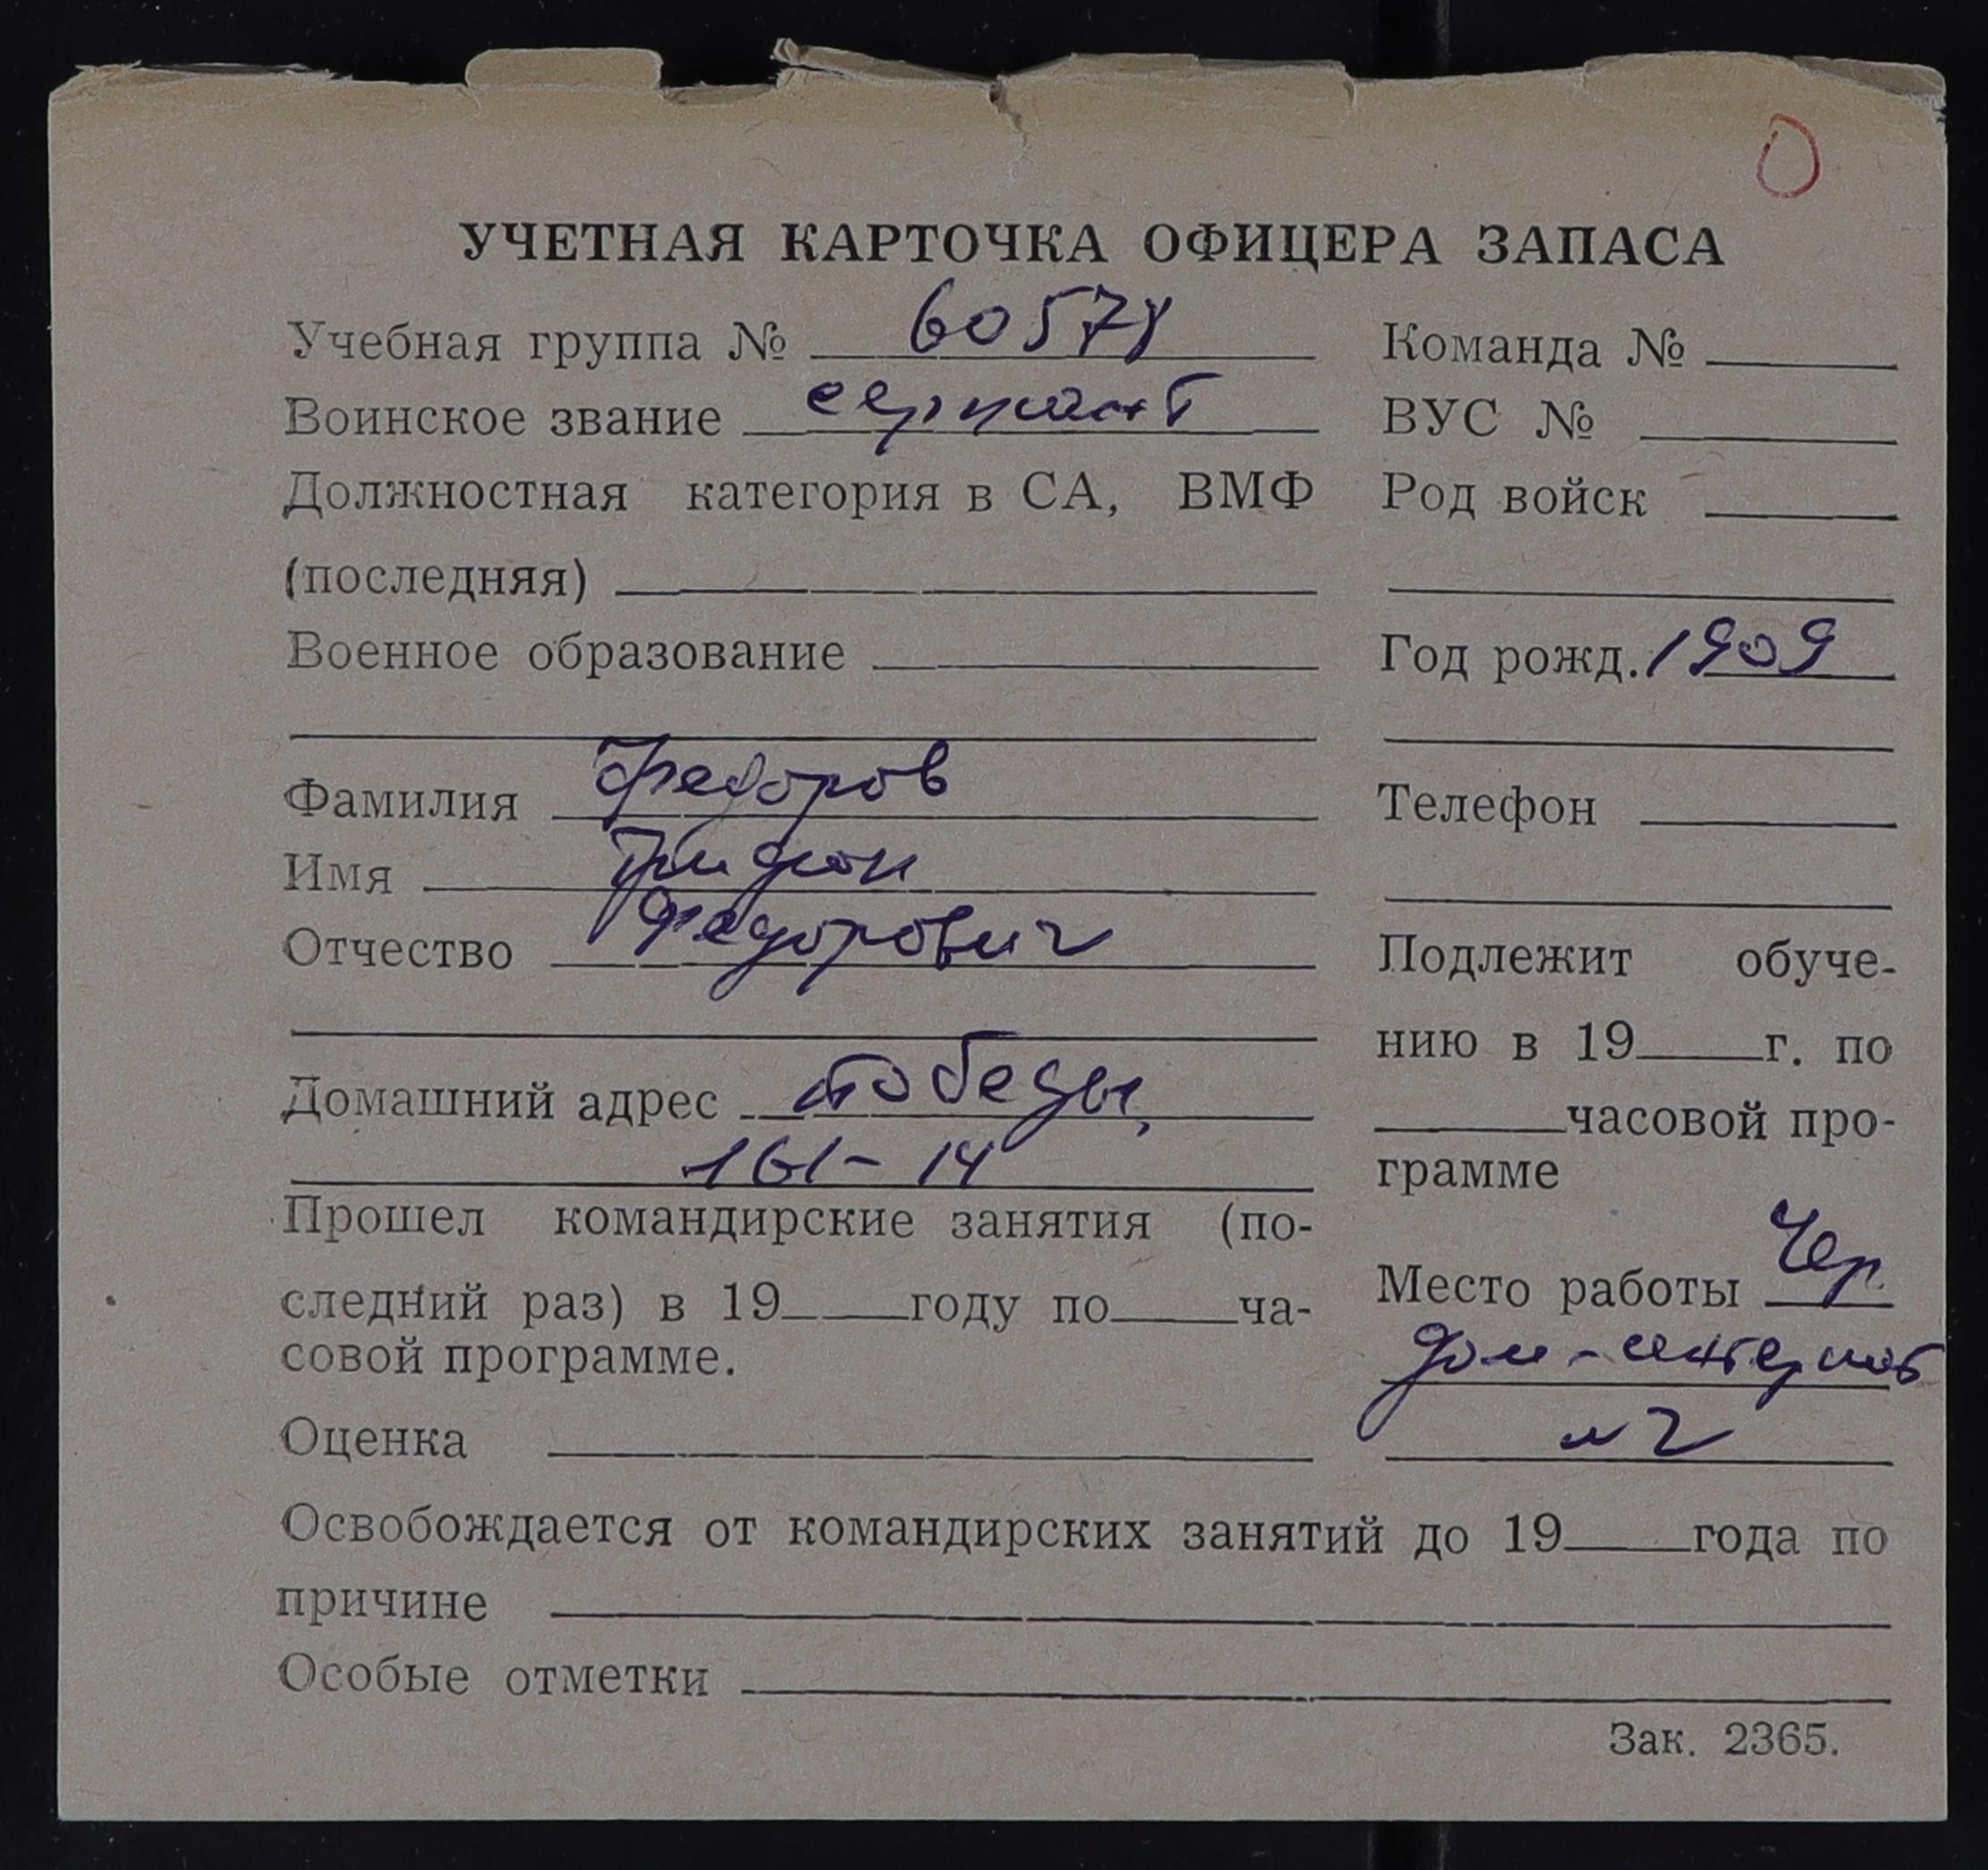 О
УЧЕТНАЯ КАРТОЧКА ОФИЦЕРА ЗАПАСА
Учебная группа № 60578
Команда №
Воинское звание сержант
ВУС №
Должностная категория в СА, ВМФ
Род войск
(последняя)
Военное образование
Год рожд. 1909
Фамилия Федоров
Телефон
Имя Трифон
Отчество Федорович
Подлежит обуче-
нию в 19 г. по
Домашний адрес Победы,
часовой про-
161-14
грамме
Прошел командирские занятия (по-
следний раз) в 19 году по ча-
совой программе.
Место работы Чер.
дом-интернат
Оценка
№2
Освобождается от командирских занятий до 19 года по
причине
Особые отметки
Зак. 2365.